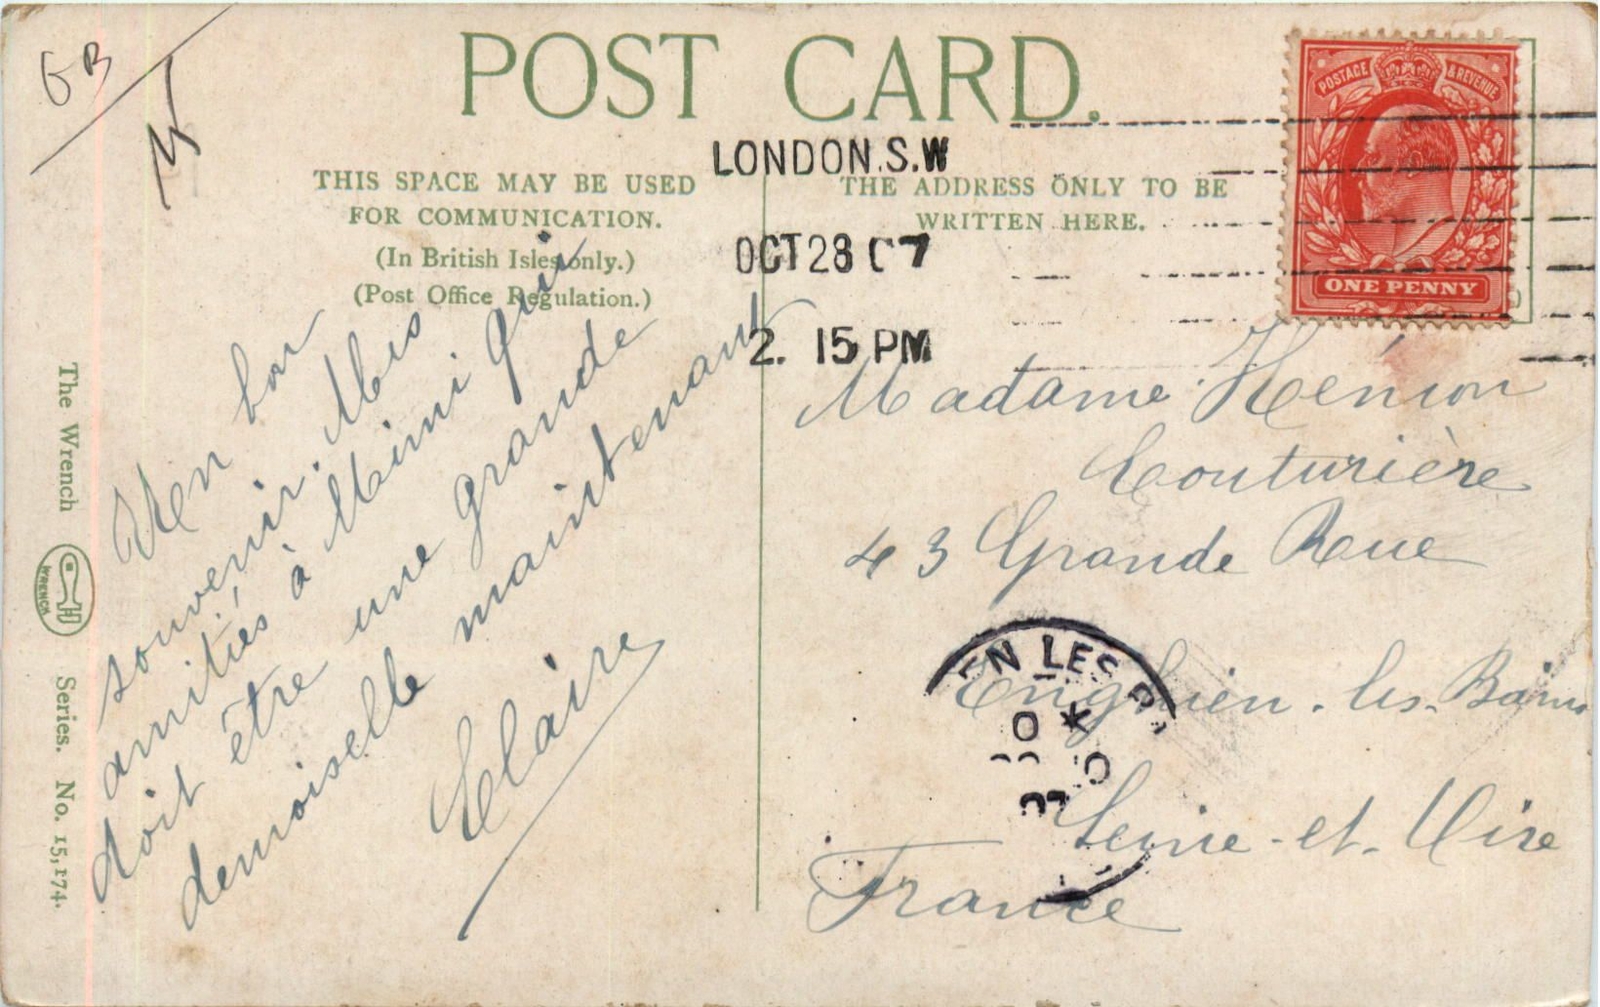 GB
POST CARD.
LONDON.S.W
THIS SPACE MAY BE USED
FOR COMMUNICATION.
(In British Isles only.)
(Post Office Regulation.)
THE ADDRESS ONLY TO BE
WRITTEN HERE.
OCT 28 07
2. 15 PM
POSTAGE & REVENUE
ONE PENNY
Mon bon
souvenir. Mes
amitiés à Mimi qui
doit être une grande
demoiselle maintenant
Claire
Madame Hénion
Couturière
43 Grande Rue
Enghien-les-Bains
Seine-et-Oise
France
EN LES B
The Wrench
WRENCH
Series. No. 15,174.